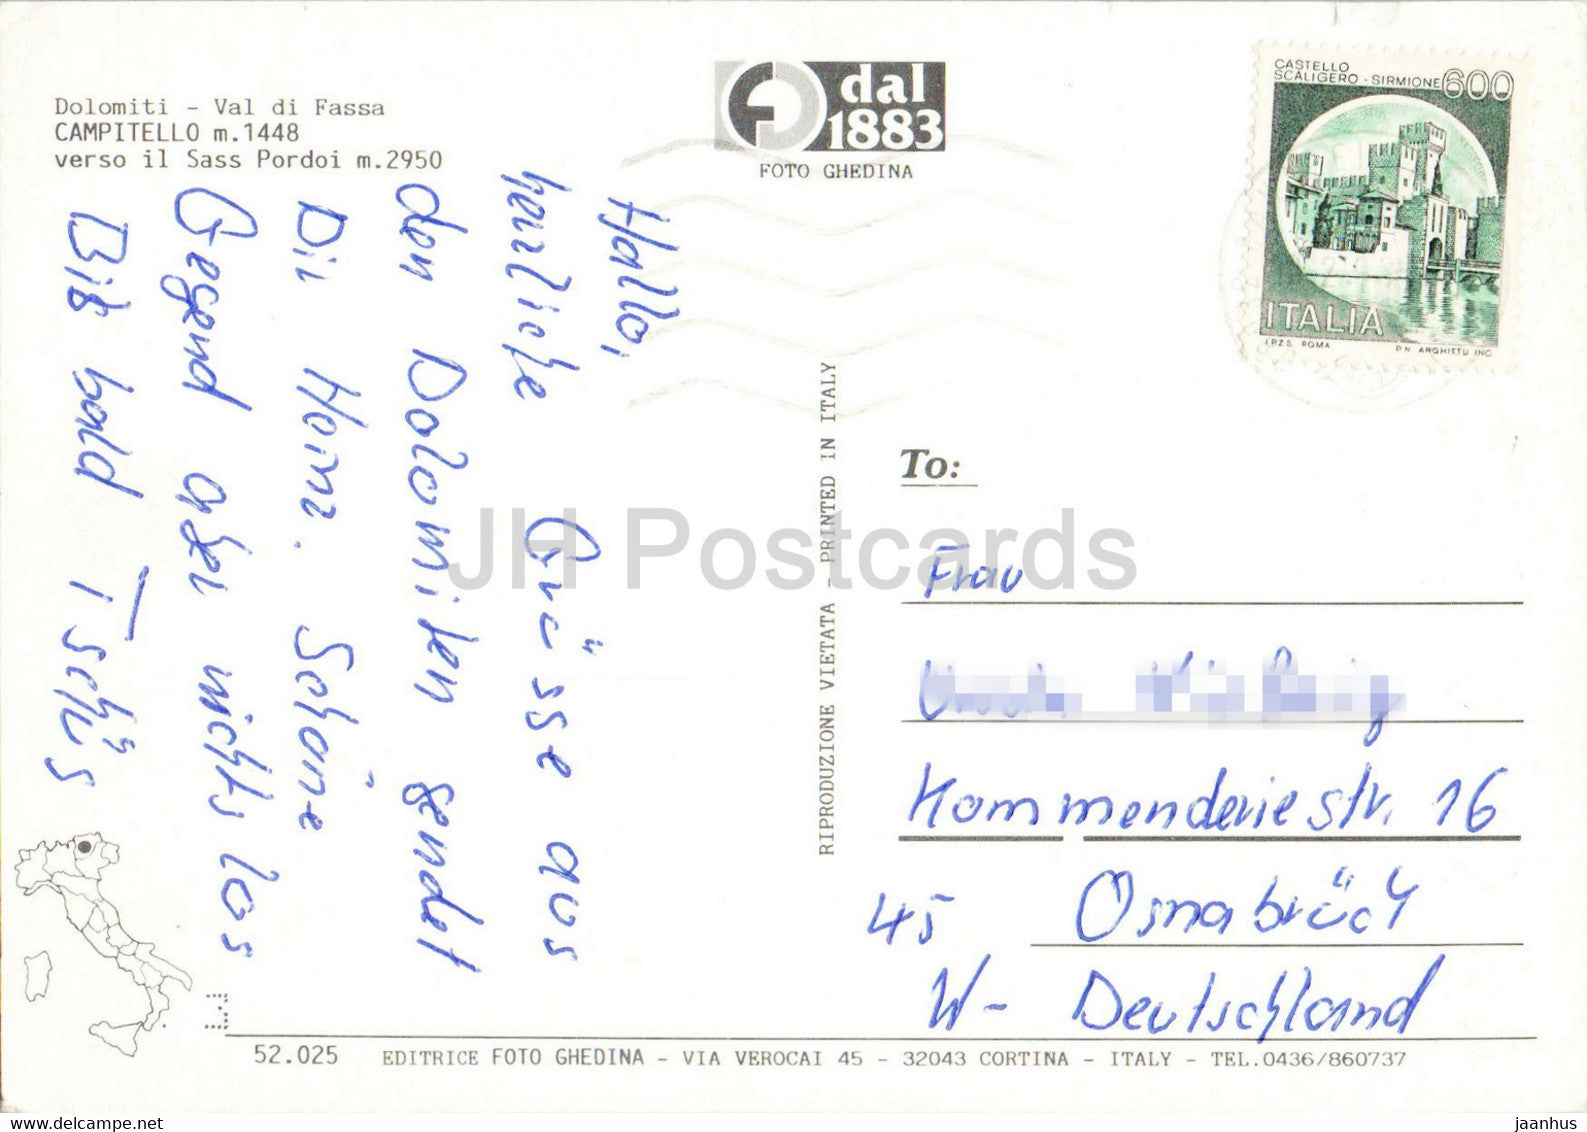 Dolomiti - Val di Fassa
CAMPITELLO m.1448
verso il Sass Pordoi m.2950
dal
1883
FOTO GHEDINA
CASTELLO
SCALIGERO - SIRMIONE 600
ITALIA
I.P.Z.S. ROMA P.N. ARGHITTU INC
Hallo,
herzliche Grüsse aus
den Dolomiten sendet
Dir Heinz. Schöne
Gegend aber nichts los
Bis bald Tschüs
RIPRODUZIONE VIETATA - PRINTED IN ITALY
To:
Frau
Kommenderiestr. 16
45 Osnabrück
W- Deutschland
52.025 EDITRICE FOTO GHEDINA - VIA VEROCAI 45 - 32043 CORTINA - ITALY - TEL.0436/860737
JH Postcards
www.delcampe.net
jaanhus